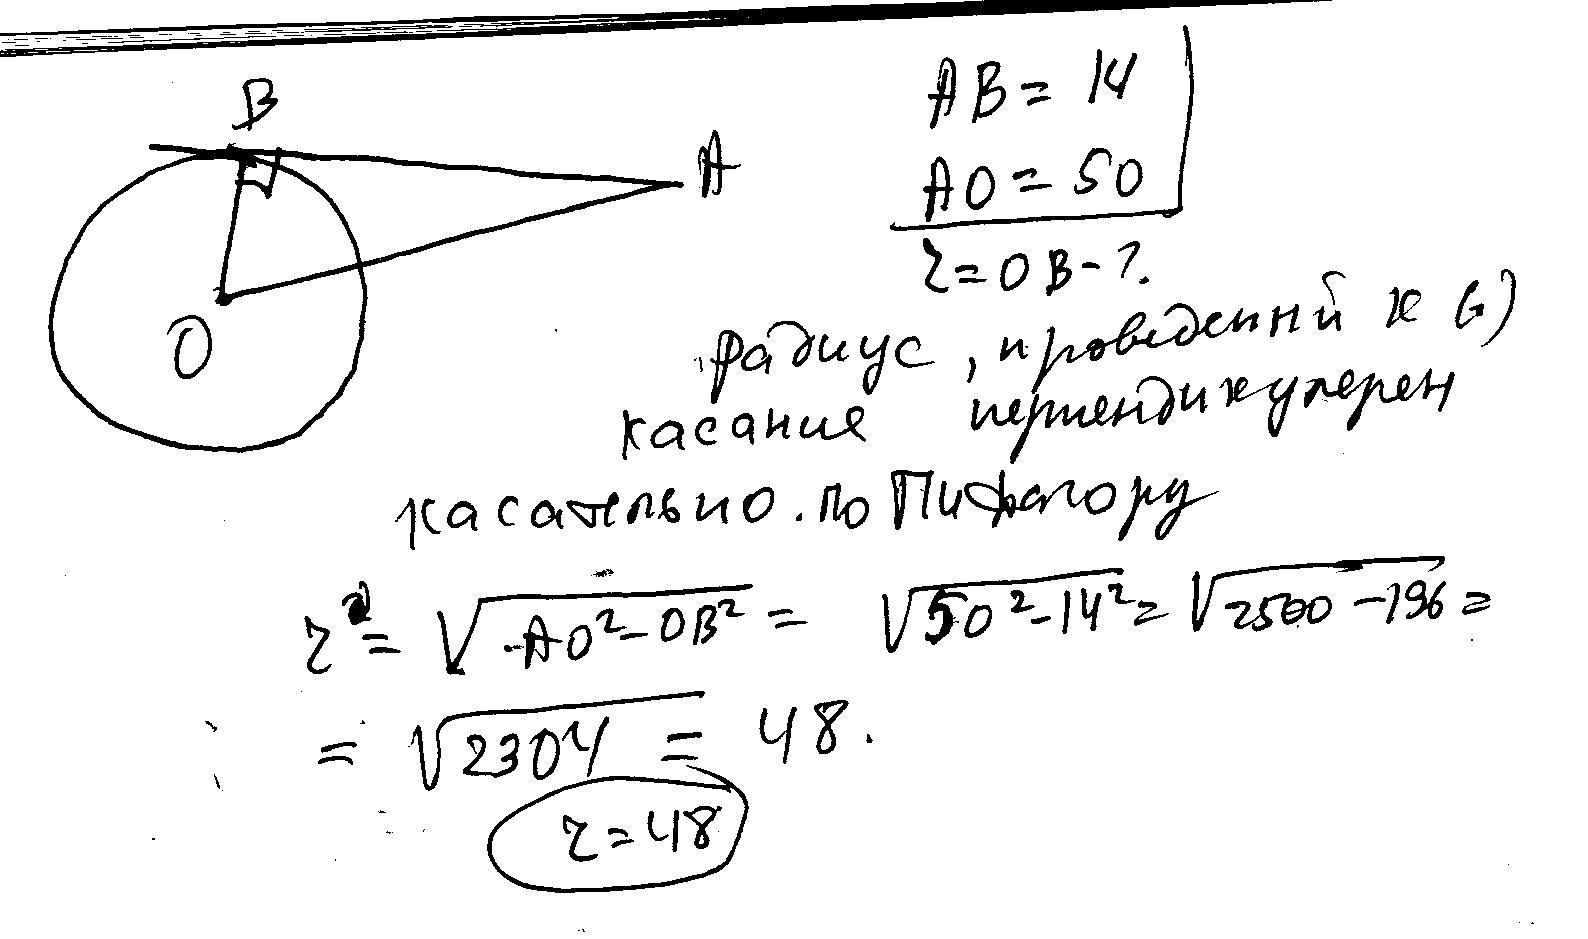 B
A
O
AB = 14
AO = 50
r = OB - ?
радиус, проведенный к (·)
касания перпендикулярен
касательно. по Пифагору
r = √AO² - OB² = √50² - 14² = √2500 - 196 =
= √2304 = 48.
r = 48